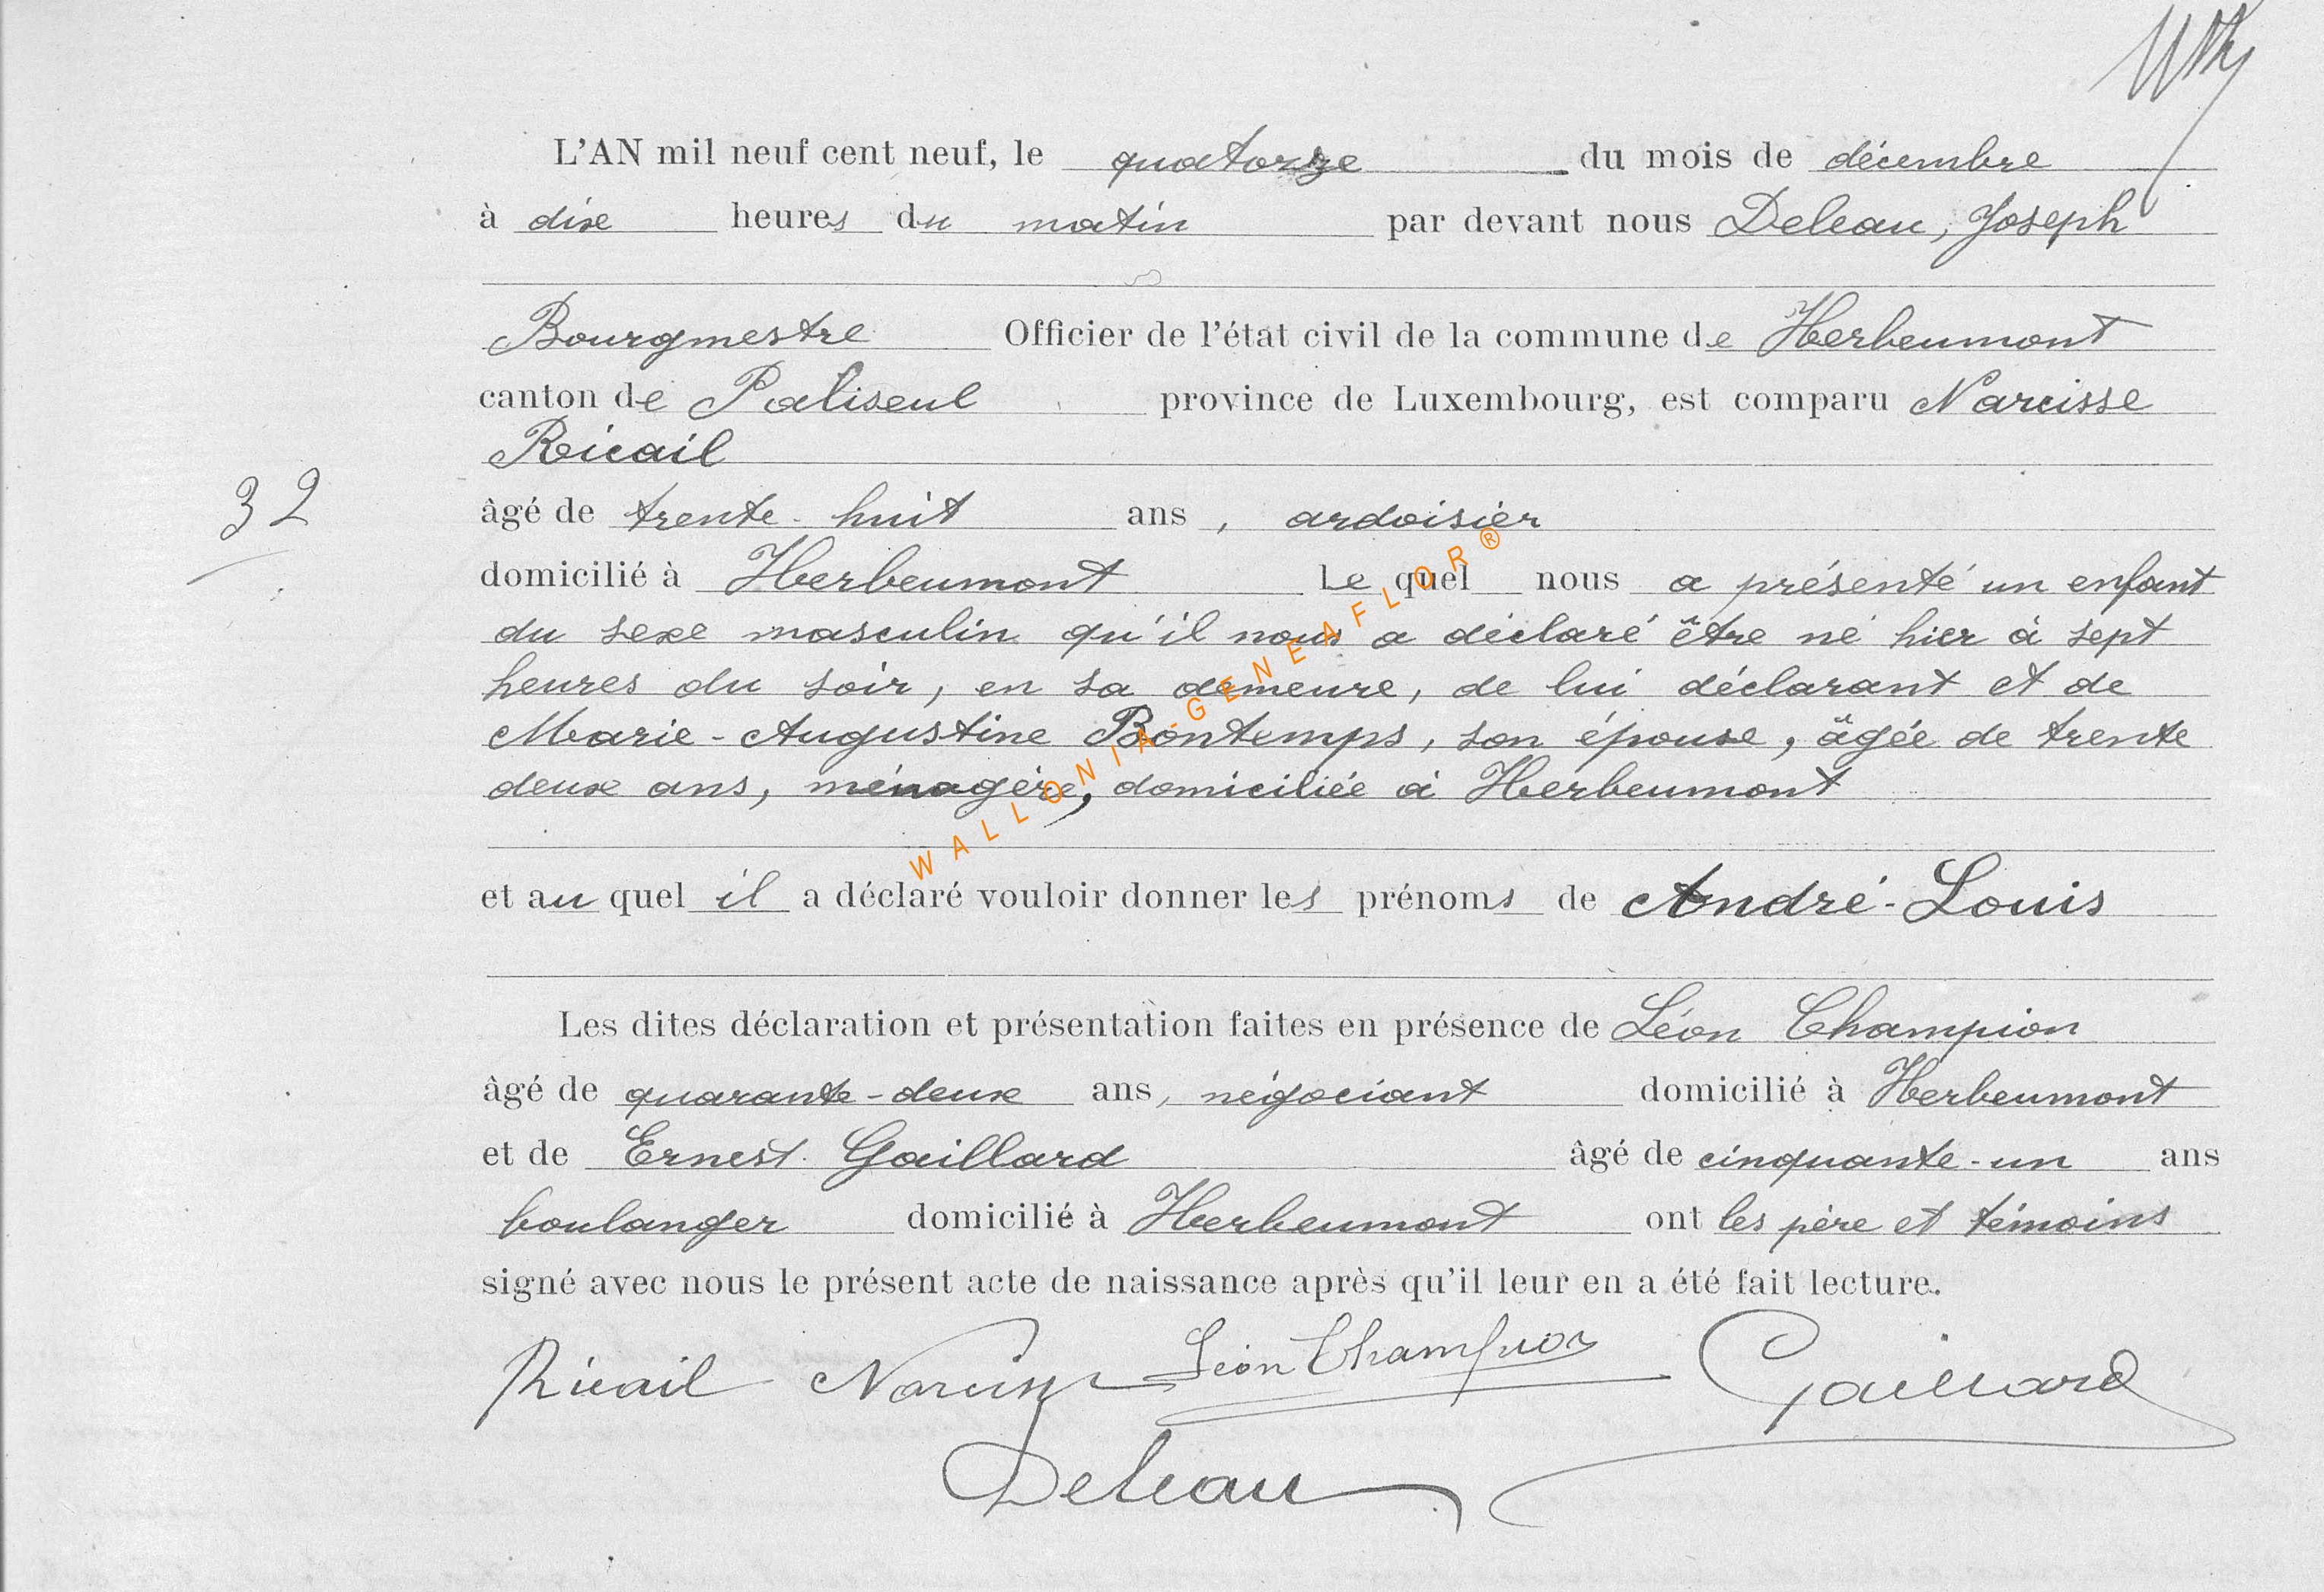 L'AN mil neuf cent neuf, le quatorze du mois de décembre
à dixe heures du matin par devant nous Deleau, Joseph
Bourgmestre Officier de l'état civil de la commune de Herbeumont
canton de Paliseul province de Luxembourg, est comparu Narcisse
Ricail
32
âgé de trente-huit ans, ardoisier
domicilié à Herbeumont Le quel nous a présenté un enfant
du sexe masculin qu'il nous a déclaré être né hier à sept
heures du soir, en sa demeure, de lui déclarant et de
Marie-Augustine Bontemps, son épouse, âgée de trente
deux ans, ménagère, domiciliée à Herbeumont
WALLONIA-GENEAFLOR®
et au quel il a déclaré vouloir donner les prénoms de André-Louis
Les dites déclaration et présentation faites en présence de Léon Champion
âgé de quarante-deux ans, négociant domicilié à Herbeumont
et de Ernest Gaillard âgé de cinquante-un ans
boulanger domicilié à Herbeumont ont les père et témoins
signé avec nous le présent acte de naissance après qu'il leur en a été fait lecture.
Ricail Narcisse Léon Champion Gaillard
Deleau